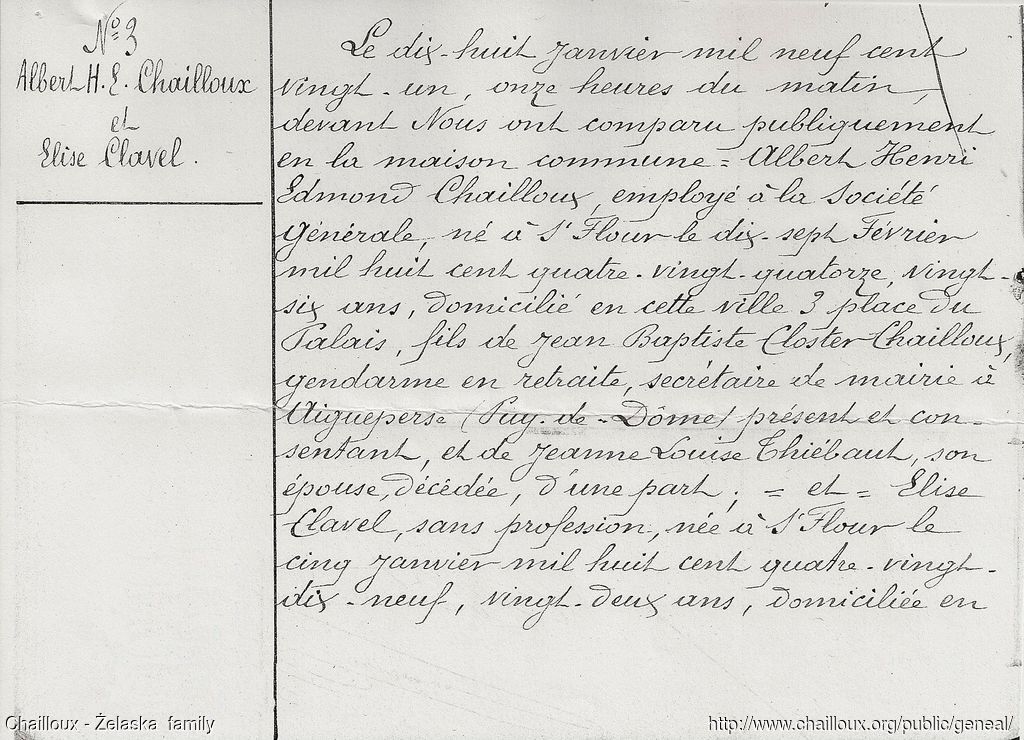 N° 3
Albert H. E. Chailloux
et
Elise Clavel.
Le dix-huit Janvier mil neuf cent
vingt-un, onze heures du matin,
devant Nous ont comparu publiquement
en la maison commune = Albert Henri
Edmond Chailloux, employé à la Société
Générale, né à St Flour le dix-sept Février
mil huit cent quatre-vingt-quatorze, vingt-
six ans, domicilié en cette ville 3 place du
Palais, fils de Jean Baptiste Closter Chailloux,
gendarme en retraite, secrétaire de mairie à
Aigueperse (Puy-de-Dôme) présent et con-
sentant, et de Jeanne Louise Thiébaut, son
épouse, décédée, d'une part; = et = Elise
Clavel, sans profession, née à St Flour le
cinq Janvier mil huit cent quatre-vingt-
dix-neuf, vingt-deux ans, domiciliée en
Chailloux - Żelaska family
http://www.chailloux.org/public/geneal/